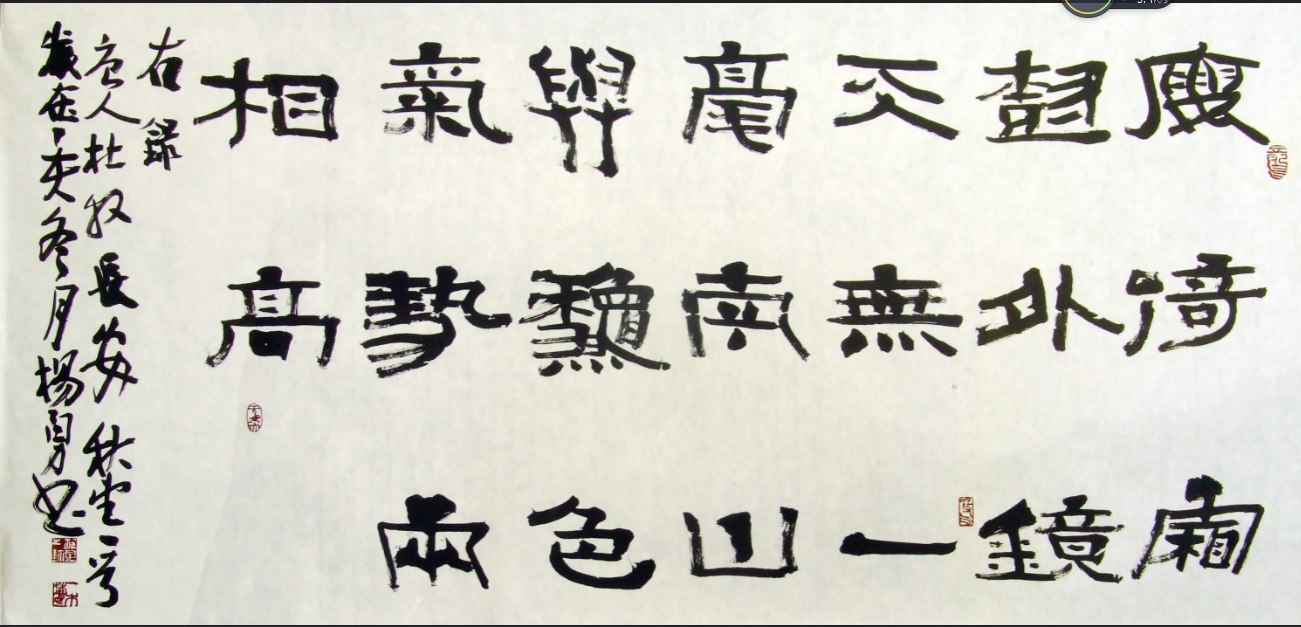 廔倚霜
尌外鏡
天無一
毫南山
與龝色
氣勢兩
相高
右錄
唐人杜牧長安秋望一首
歲在丁亥冬月楊勇书